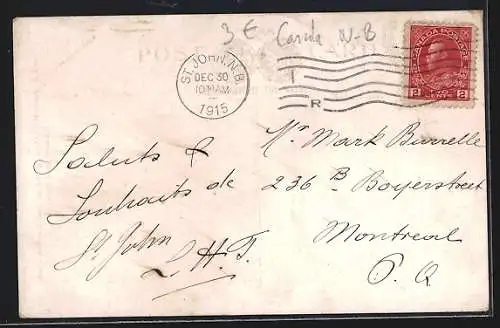 3 € Canada N-B
POST CARD
ST. JOHN, N.B.
DEC 30
10 30 AM
1915
1
R
CANADA POSTAGE
2 2
TWO CENTS
Saluts &
Souhaits de
St John
L. H. F.
Mr Mark Burrelle
236 B Boyerstreet
Montreal
P. Q